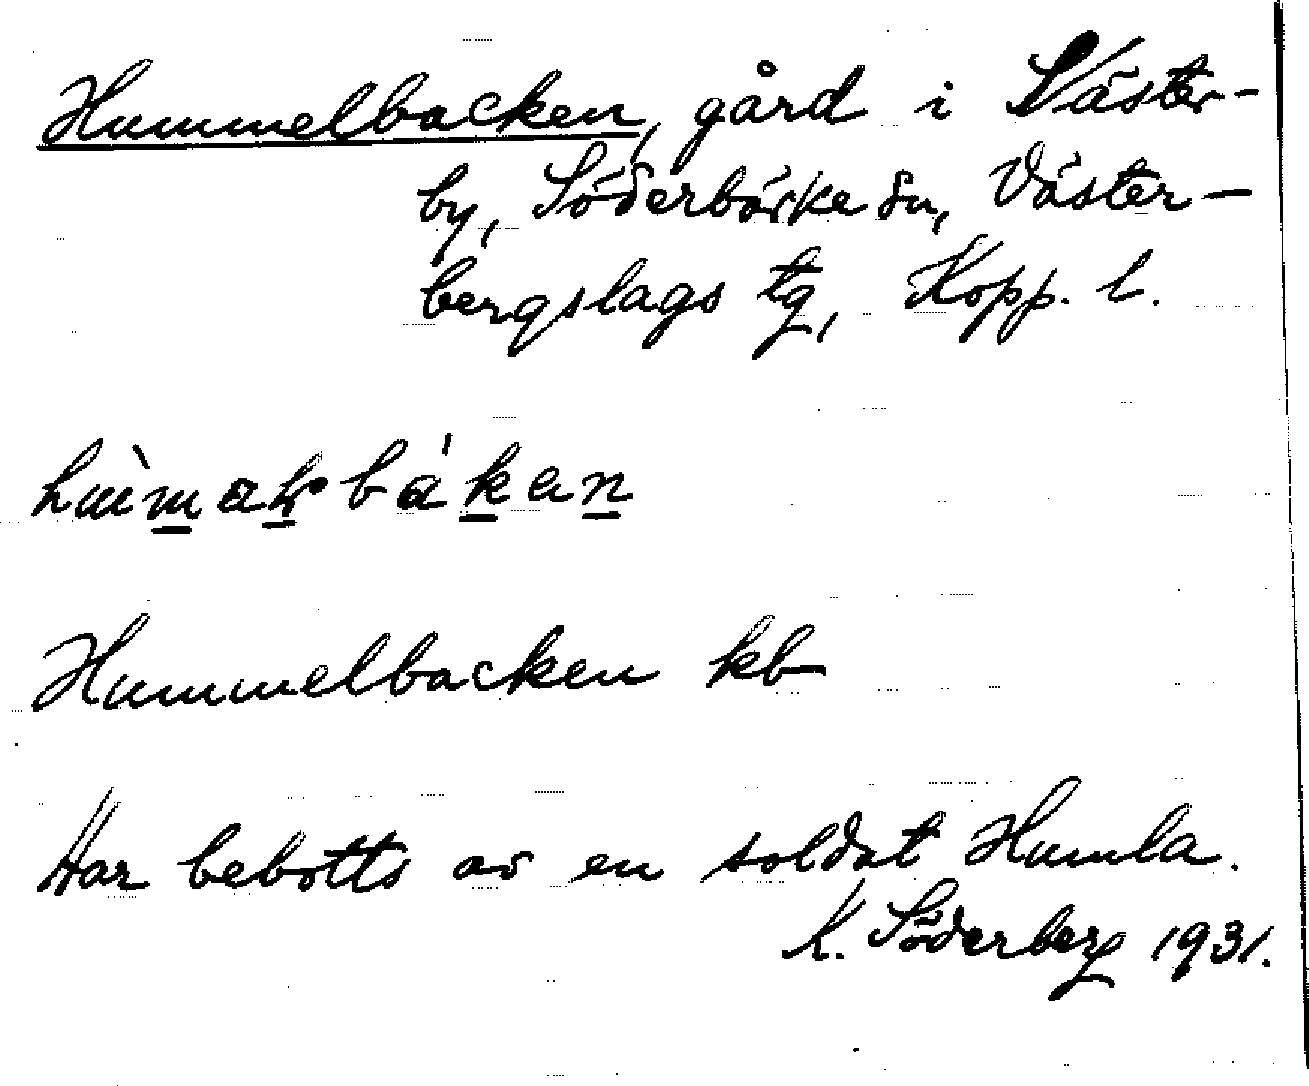 Hummelbacken, gård i Väster-
by, Söderbärke sn, Väster-
bergslags tg, Kopp. l.
Hummelbacken kb
Har bebotts av en soldat Humla.
K. Söderberg 1931.